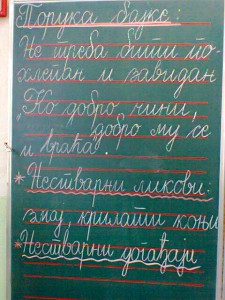 Порука бајке:
Не треба бити по-
хлепан и завидан
„Ко добро чини,
добро му се
и враћа.
* Нестварни ликови:
змај, крилати коњи
* Нестварни догађаји